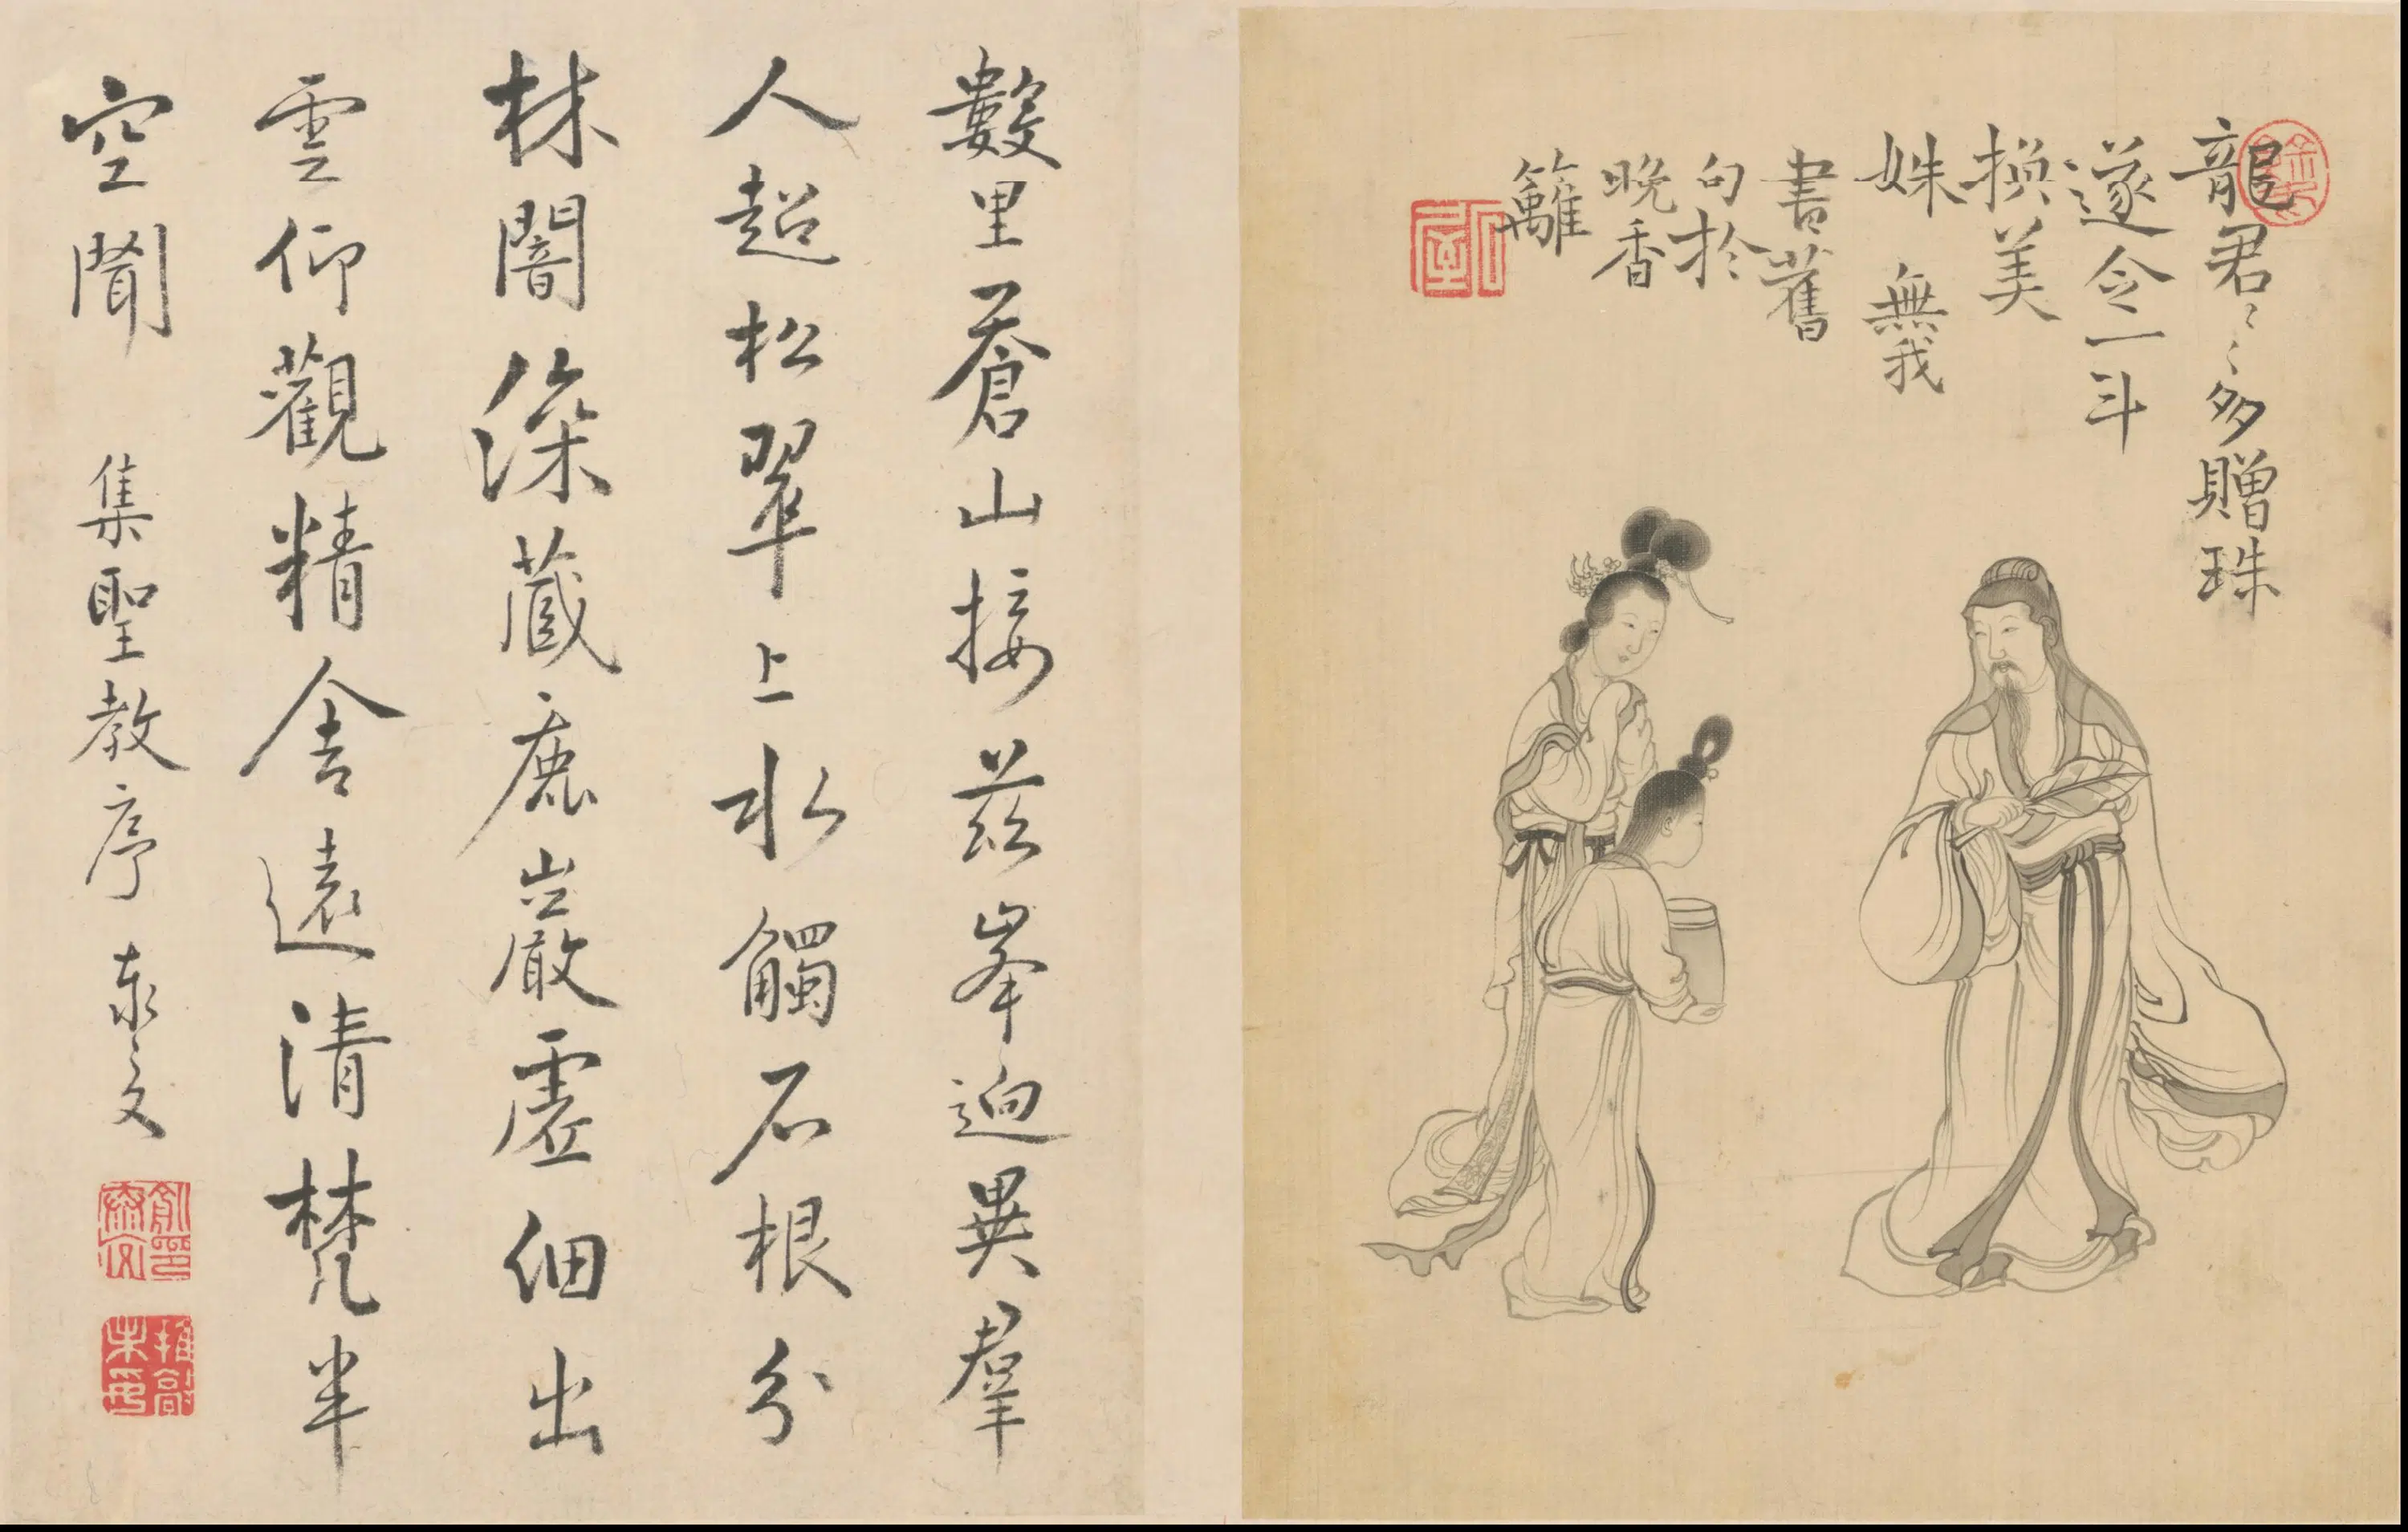 龍君〻〻多贈珠
遂令一斗
換美
姝 無我
書舊
句於
晚香
籬
數里蒼山接茲峯逈異羣
人超松翠上水觸石根分
林闇深藏鹿巖虛細出
雲仰觀精舍遠清梵半
空聞 集聖教序 泰文